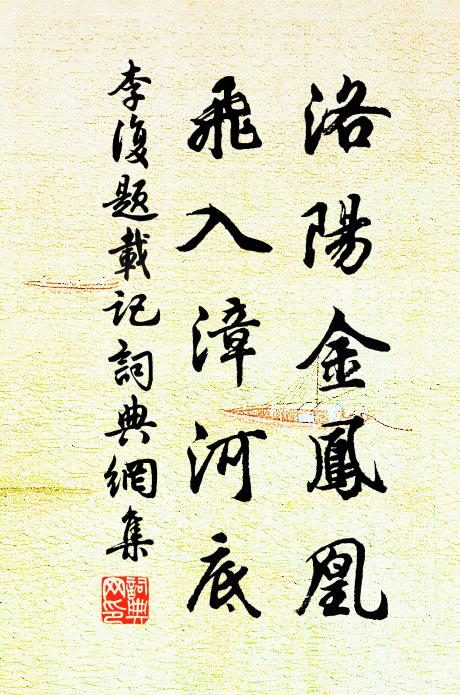 洛陽金鳳凰
飛入漳河底
李復題載記詞典網集
詞典
网印